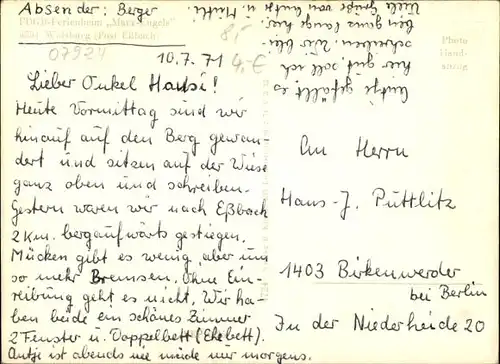 Absender: Berger
FDGB-Ferienheim "Marx-Engels"
Wurzburg (Post Eßbach)
07924
8,-
4,-€
10.7.71
Lieber Onkel Hansi!
Heute Vormittag sind wir
hinauf auf den Berg gewan-
dert und sitzen auf der Wiese
ganz oben und schreiben.
Gestern waren wir nach Eßbach
2 km. bergaufwärts gestiegen.
Mücken gibt es wenig, aber um
so mehr Bremsen. Ohne Ein-
reibung geht es nicht. Wir ha-
ben beide ein schönes Zimmer
2 Fenster u. Doppelbett (Ehebett).
Antje ist abends nie müde nur morgens.
Antje gefällt es
hier gut, soll ich
schreiben. Wir blei-
ben ganz lange hier.
Viele Grüße von Antje u. Mutti.
Photo
Hand-
abzug
An Herrn
Hans-J. Puttlitz
1403 Birkenwerder
bei Berlin
In der Niederheide 20